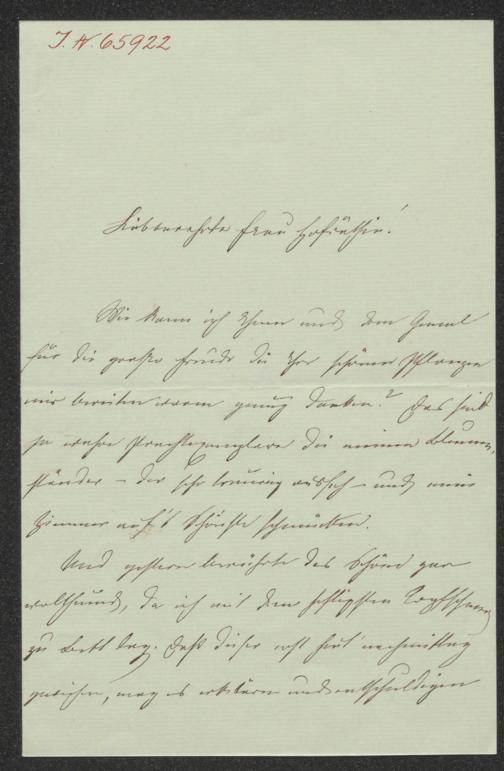 I. N. 65922
Liebverehrte Frau Hofräthin!
Wie kann ich Ihnen und dem Gemal
für die große Freude die Ihre schönen Pflanzen
mir bereiten warm genug danken? Das sind
ja wahre Prachtexemplare die meinen Blumen-
ständer – der sehr traurig aussah – und mein
Zimmer auf's Schönste schmücken.
Und gestern berührte das Schöne gar
wolthuend, da ich mit dem heftigsten Kopfschmerz
zu Bett lag. Daß dieser erst heut nachmittag
gewichen, mag es erklären und entschuldigen